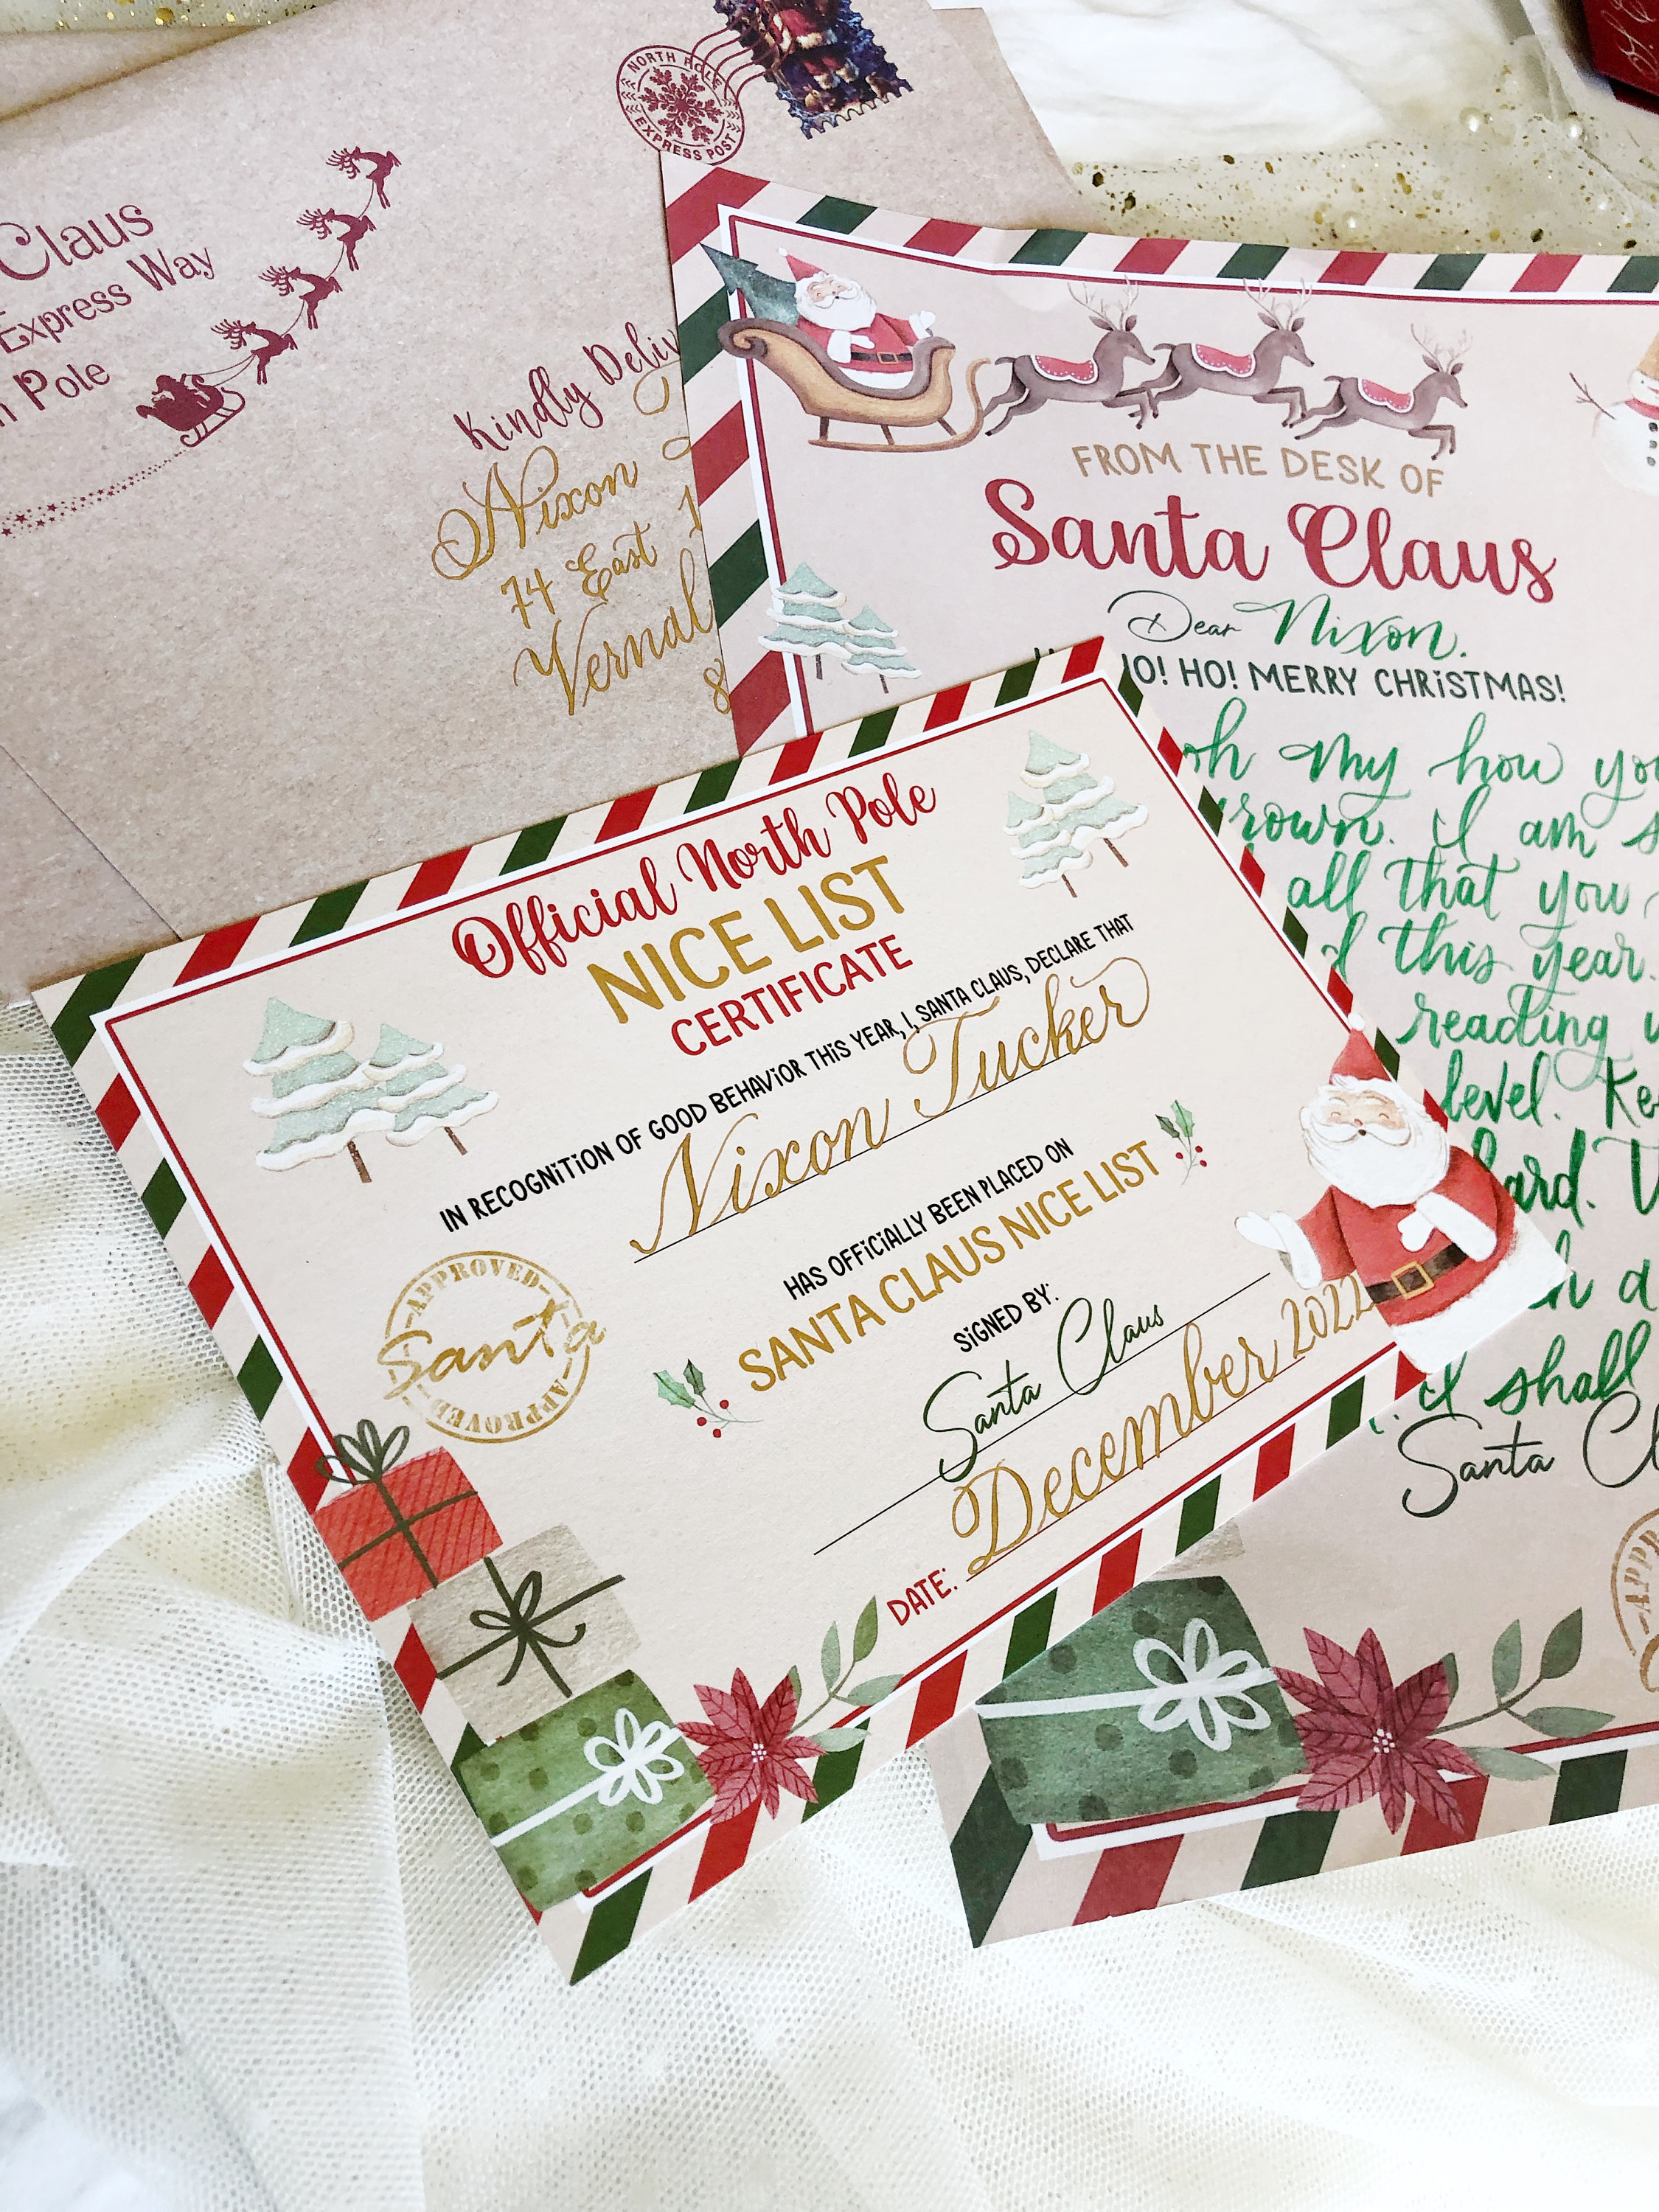 NORTH POLE
EXPRESS POST
Claus
Express Way
Pole
Kindly
Nixon
74 East
Vernal
8
FROM THE DESK OF
Santa Claus
Dear Nixon.
HO! MERRY CHRISTMAS!
oh my how
I am
all that you
this year.
reading
level.
I shall
Santa
Official North Pole
NICE LIST
CERTIFICATE
IN RECOGNITION OF GOOD BEHAVIOR THIS YEAR, I, SANTA CLAUS, DECLARE THAT
Nixon Tucker
HAS OFFICIALLY BEEN PLACED ON
SANTA CLAUS NICE LIST
SIGNED BY:
Santa Claus
DATE: December 2022
APPROVED
Santa
APPROVED